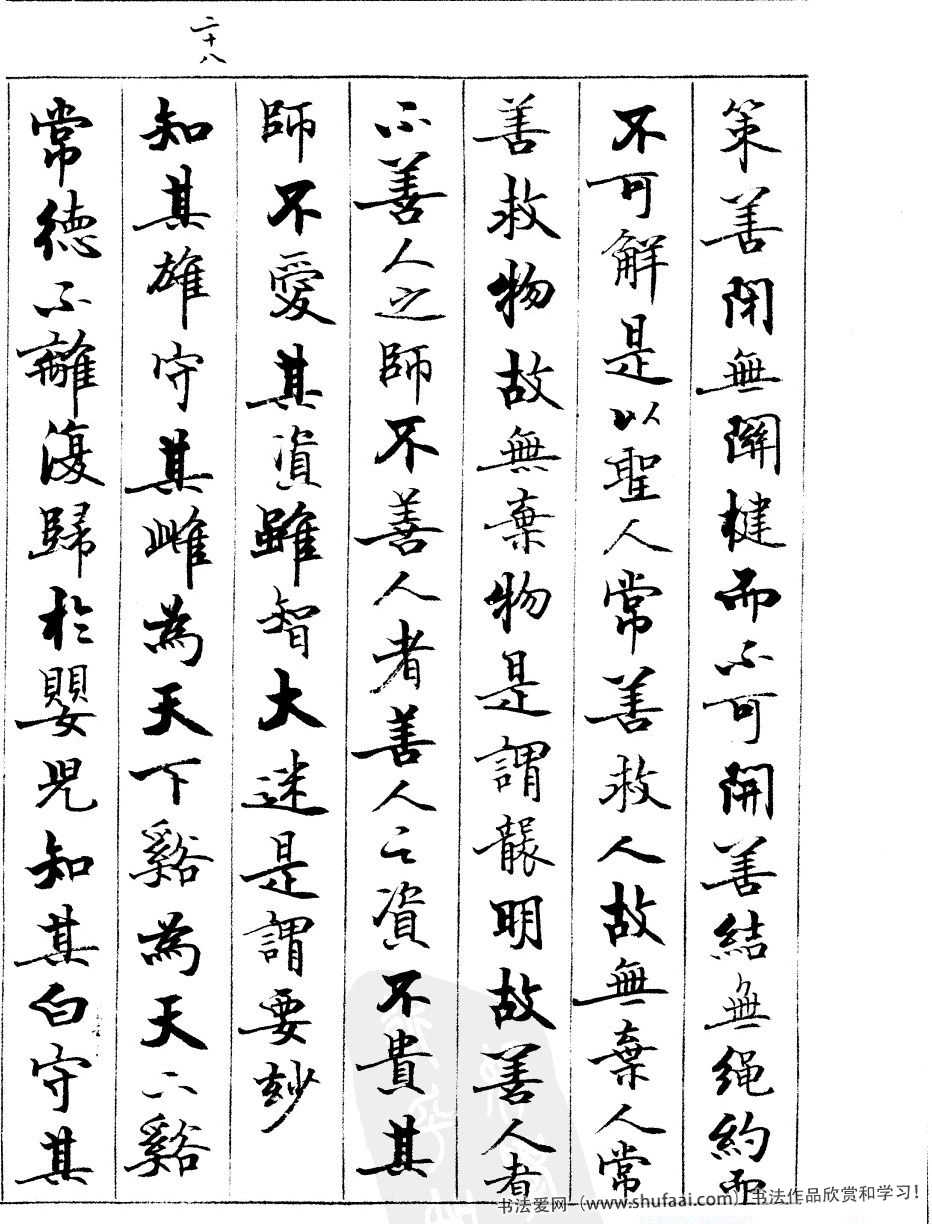 策善閉無關楗而不可開善結無繩約而
不可解是以聖人常善救人故無棄人常
善救物故無棄物是謂襲明故善人者
不善人之師不善人者善人之資不貴其
師不愛其資雖智大迷是謂要妙
二十八
知其雄守其雌為天下谿為天下谿
常德不離復歸於嬰兒知其白守其
书法爱网-(www.shufaai.com) 书法作品欣赏和学习!